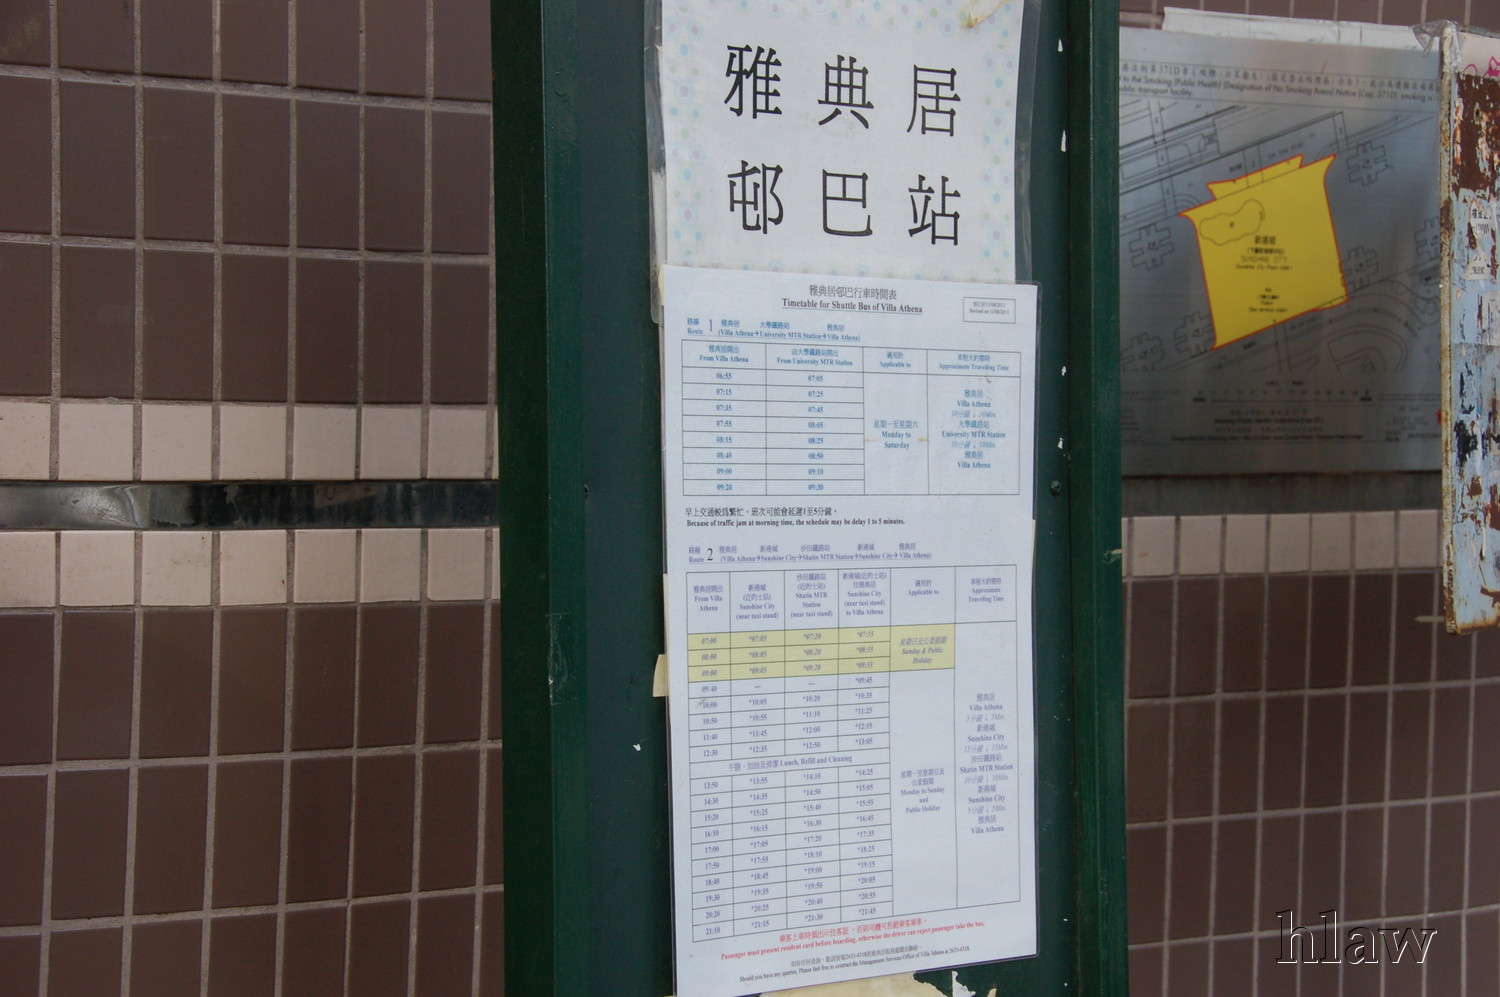 雅典居
邨巴站
雅典居邨巴行車時間表
Timetable for Shuttle Bus of Villa Athena
路線 1 雅典居 大學鐵路站 雅典居
Route (Villa Athena→University MTR Station→Villa Athena)
雅典居開出 由大學鐵路站開出 適用於 車程大約需時
From Villa Athena From University MTR Station Applicable to Approximate Travelling Time
06:55 07:05
07:15 07:25
07:35 07:45
07:55 08:05
08:15 08:25
08:40 08:50
09:00 09:10
09:20 09:30
星期一至星期六
Monday to
Saturday
雅典居
Villa Athena
10分鐘 ↓ 10Min.
大學鐵路站
University MTR Station
10分鐘 ↓ 10Min.
雅典居
Villa Athena
早上交通較為繁忙，班次可能會延遲1至5分鐘。
Because of traffic jam at morning time, the schedule may be delay 1 to 5 minutes.
路線 2 雅典居 新港城 沙田鐵路站 新港城 雅典居
Route (Villa Athena→Sunshine City→Shatin MTR Station→Sunshine City→Villa Athena)
雅典居開出
From Villa
Athena
新港城
(近的士站)
Sunshine City
(near taxi stand)
沙田鐵路站
(近的士站)
Shatin MTR
Station
(near taxi stand)
新港城(近的士站)
往雅典居
Sunshine City
(near taxi stand)
to Villa Athena
適用於
Applicable to
車程大約需時
Approximate
Travelling Time
07:00 *07:05 *07:20 *07:35
08:00 *08:05 *08:20 *08:35
09:00 *09:05 *09:20 *09:35
星期日及公眾假期
Sunday & Public
Holiday
09:40 — — *09:45
10:00 *10:05 *10:20 *10:35
10:50 *10:55 *11:10 *11:25
11:40 *11:45 *12:00 *12:15
12:30 *12:35 *12:50 *13:05
午膳、加油及清潔 Lunch, Refill and Cleaning
13:50 *13:55 *14:10 *14:25
14:30 *14:35 *14:50 *15:05
15:20 *15:25 *15:40 *15:55
16:10 *16:15 *16:30 *16:45
17:00 *17:05 *17:20 *17:35
17:50 *17:55 *18:10 *18:25
18:40 *18:45 *19:00 *19:15
19:30 *19:35 *19:50 *20:05
20:20 *20:25 *20:40 *20:55
21:10 *21:15 *21:30 *21:45
星期一至星期日及
公眾假期
Monday to Sunday
and
Public Holiday
雅典居
Villa Athena
5分鐘 ↓ 5Min.
新港城
Sunshine City
15分鐘 ↓ 15Min.
沙田鐵路站
Shatin MTR Station
10分鐘 ↓ 10Min.
新港城
Sunshine City
5分鐘 ↓ 5Min.
雅典居
Villa Athena
乘客上車時須出示住客証，否則司機可拒絕乘客乘車。
Passenger must present resident card before boarding, otherwise the driver can reject passenger take the bus.
Should you have any queries, Please feel free to contact the Management Services Office of Villa Athena at 2633-4318
to the Smoking (Public Health) (Designation of No Smoking Areas) Notice (Cap. 371D), smoking is
public transport facility.
新港城
SUNSHINE CITY
hlaw